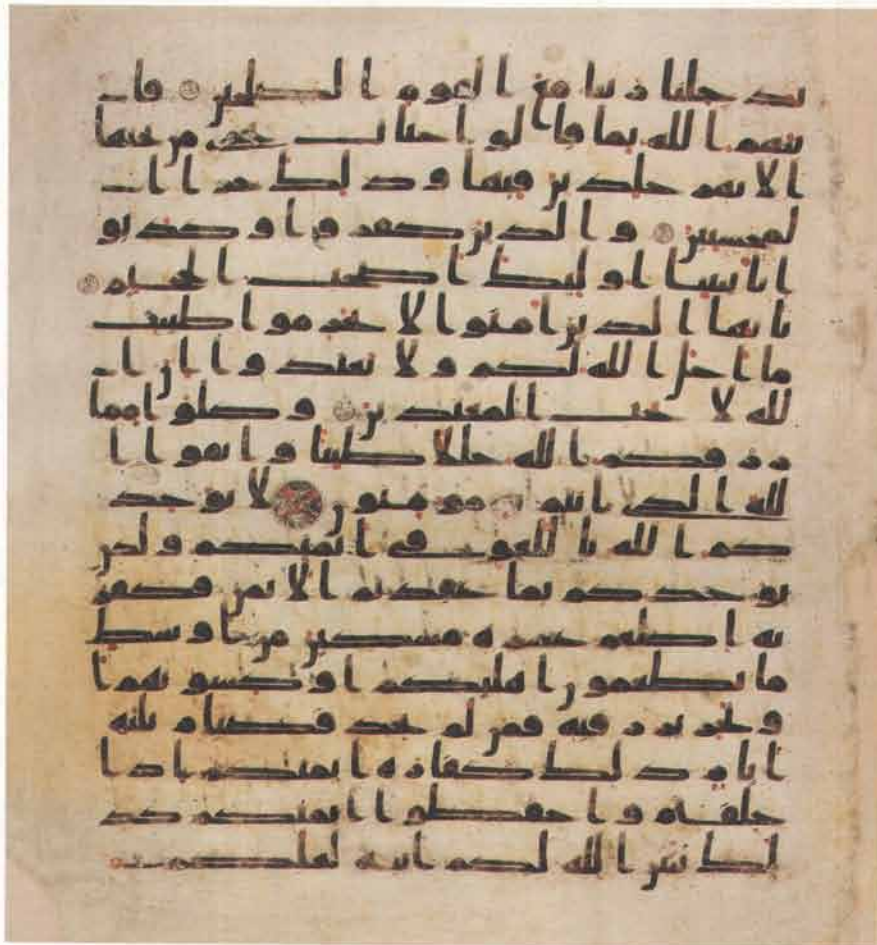 يدخلنا ربنا مع القوم الصلحين فا
ثبهم الله بما قالوا جنات تجري من تحتها
الانهر خلدين فيها وذلك جزا ا
لمحسنين والذين كفروا وكذبو
ا باييتنا اوليك اصحب الجحيم
يايها الذين امنوا لا تحرموا طيبت
ما احل الله لكم ولا تعتدوا ان ا
لله لا يحب المعتدين وكلوا مما
رزقكم الله حللا طيبا واتقوا ا
لله الذي انتم به مومنون لا يوخذ
كم الله باللغو في ايمنكم ولكن
يوخذكم بما عقدتم الايمن فكفر
ته اطعم عشرة مسكين من اوسط
ما تطعمون اهليكم او كسوتهم ا
و تحرير رقبة فمن لم يجد فصيام ثلثة
ايام ذلك كفارة ايمنكم اذا
حلفتم واحفظوا ايمنكم كذ
لك يبين الله لكم ايته لعلكم